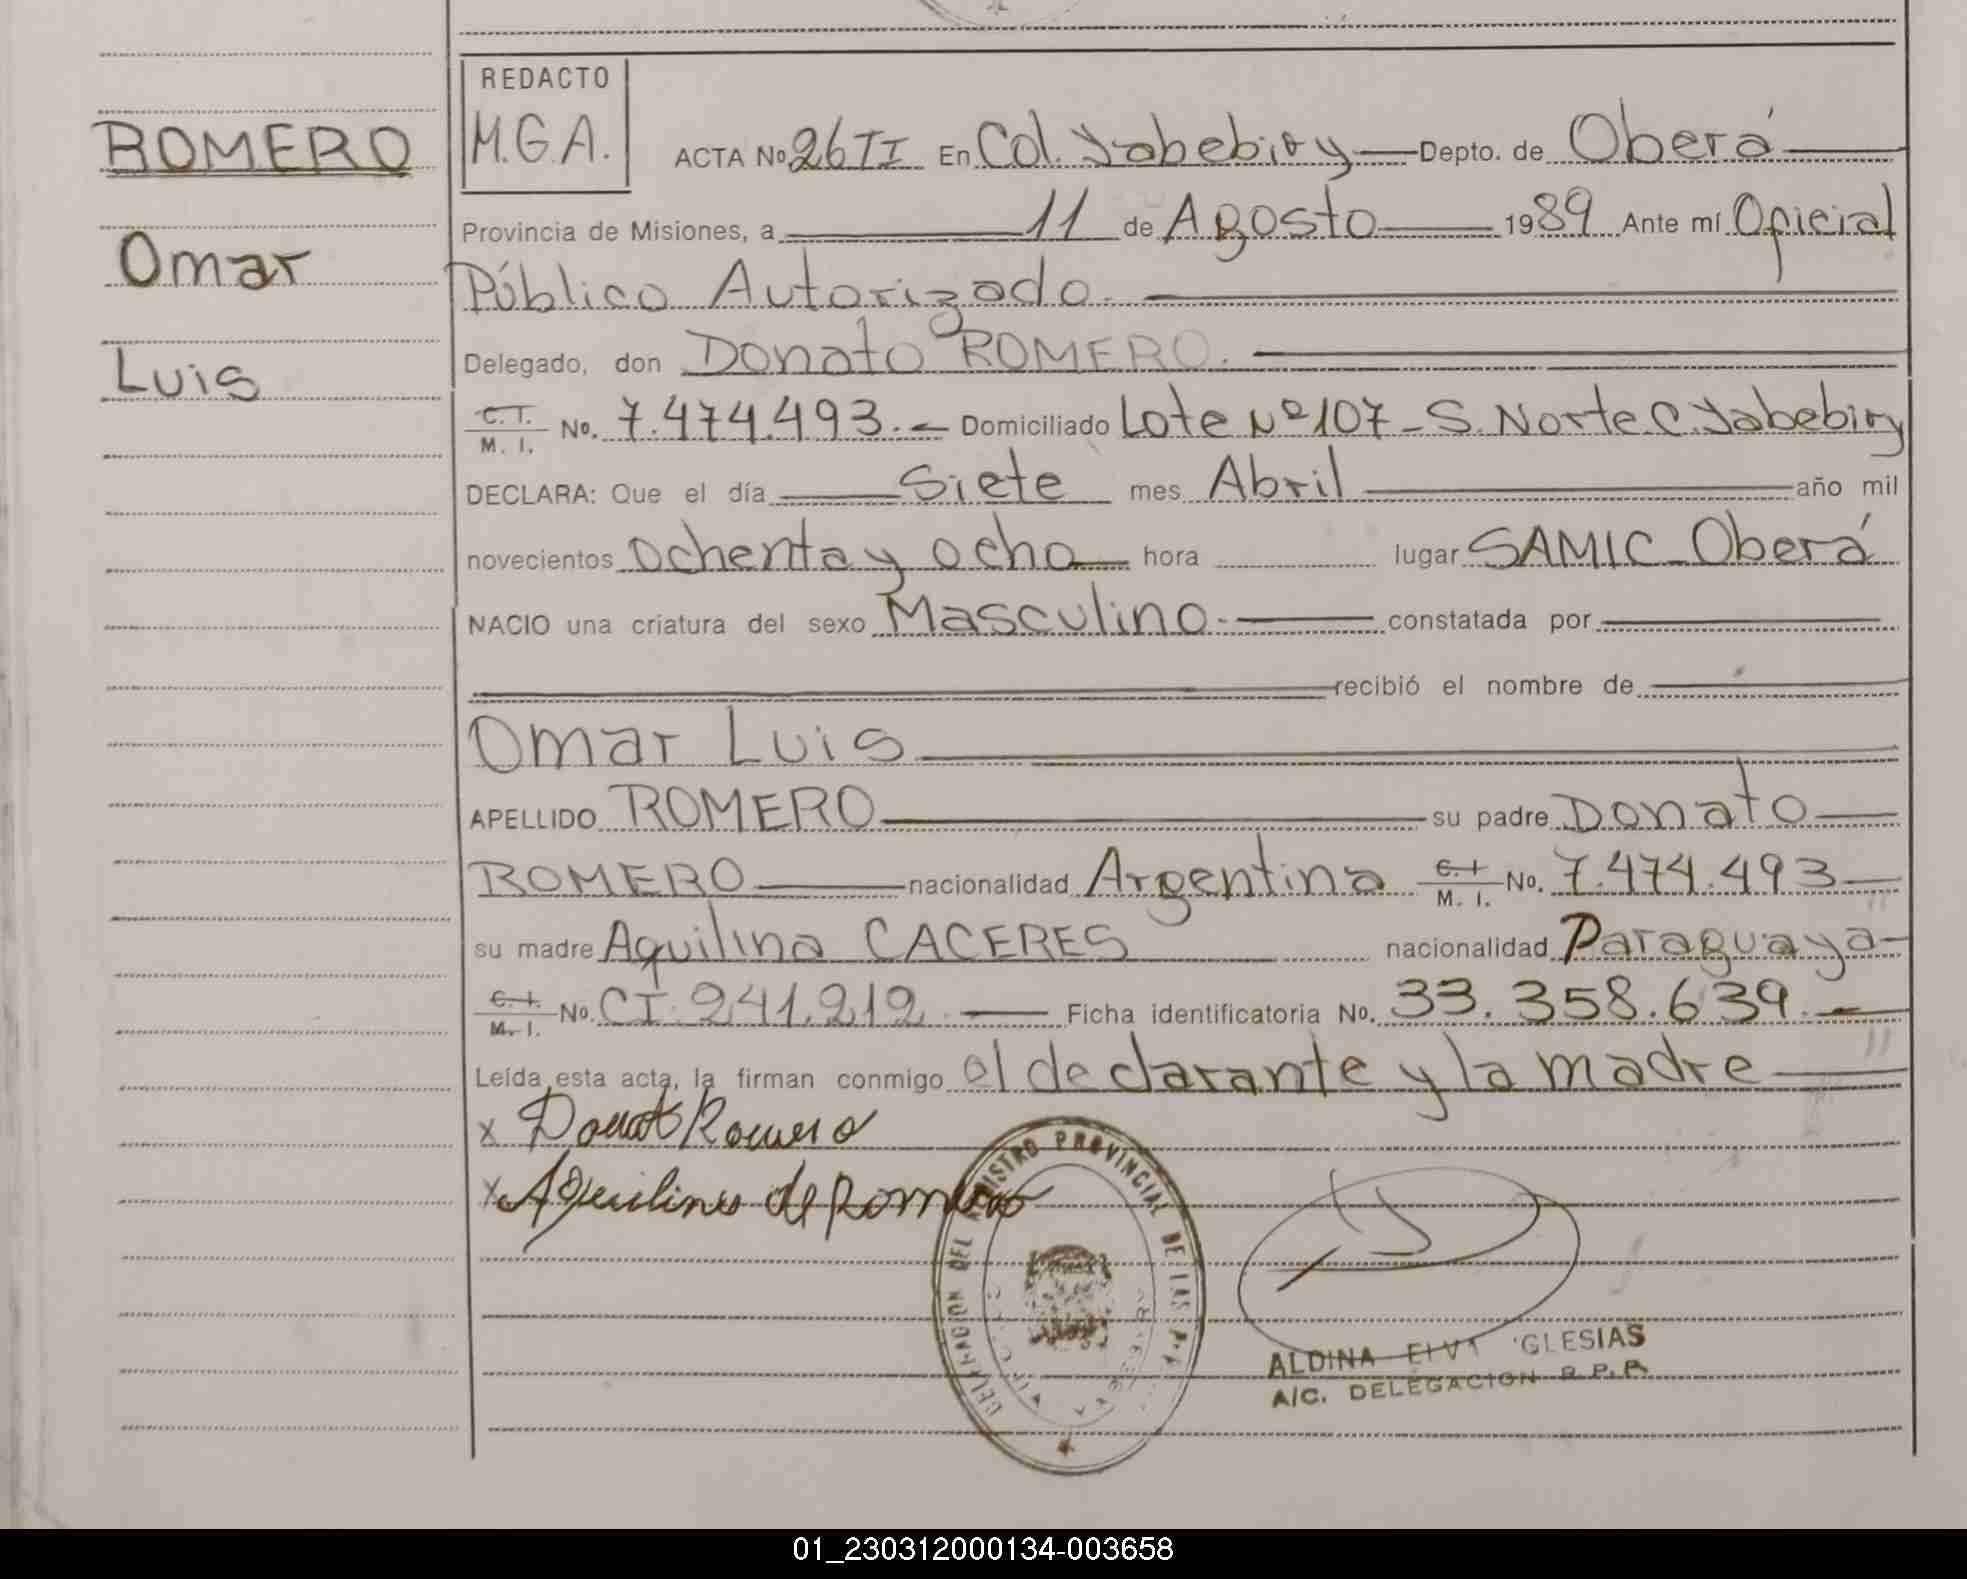 REDACTO
M.G.A.
ROMERO
Omar
Luis
ACTA No 26 TI En Col. Yabebiry Depto. de Oberá
Provincia de Misiones, a 11 de Agosto 1989 Ante mí Oficial
Público Autorizado.
Delegado, don Donato ROMERO.
C.I. M. I. No. 7.474.493.- Domiciliado Lote Nº 107 - S. Norte C. Yabebiry
DECLARA: Que el día Siete mes Abril año mil
novecientos ochenta y ocho hora lugar SAMIC - Oberá
NACIO una criatura del sexo Masculino.- constatada por
recibió el nombre de
Omar Luis
APELLIDO ROMERO su padre Donato
ROMERO nacionalidad Argentina C.I. M. I. No. 7.474.493
su madre Aquilina CACERES nacionalidad Paraguaya
C.I. M. I. No. CI. 241.212 Ficha identificatoria No. 33.358.639.-
Leída esta acta, la firman conmigo el declarante y la madre
x Donato Romero
x Aquilina de Romero
DELEGACION DEL REGISTRO PROVINCIAL DE LAS
ALDINA ELVA IGLESIAS
A/C. DELEGACION R.P.P.
01_230312000134-003658